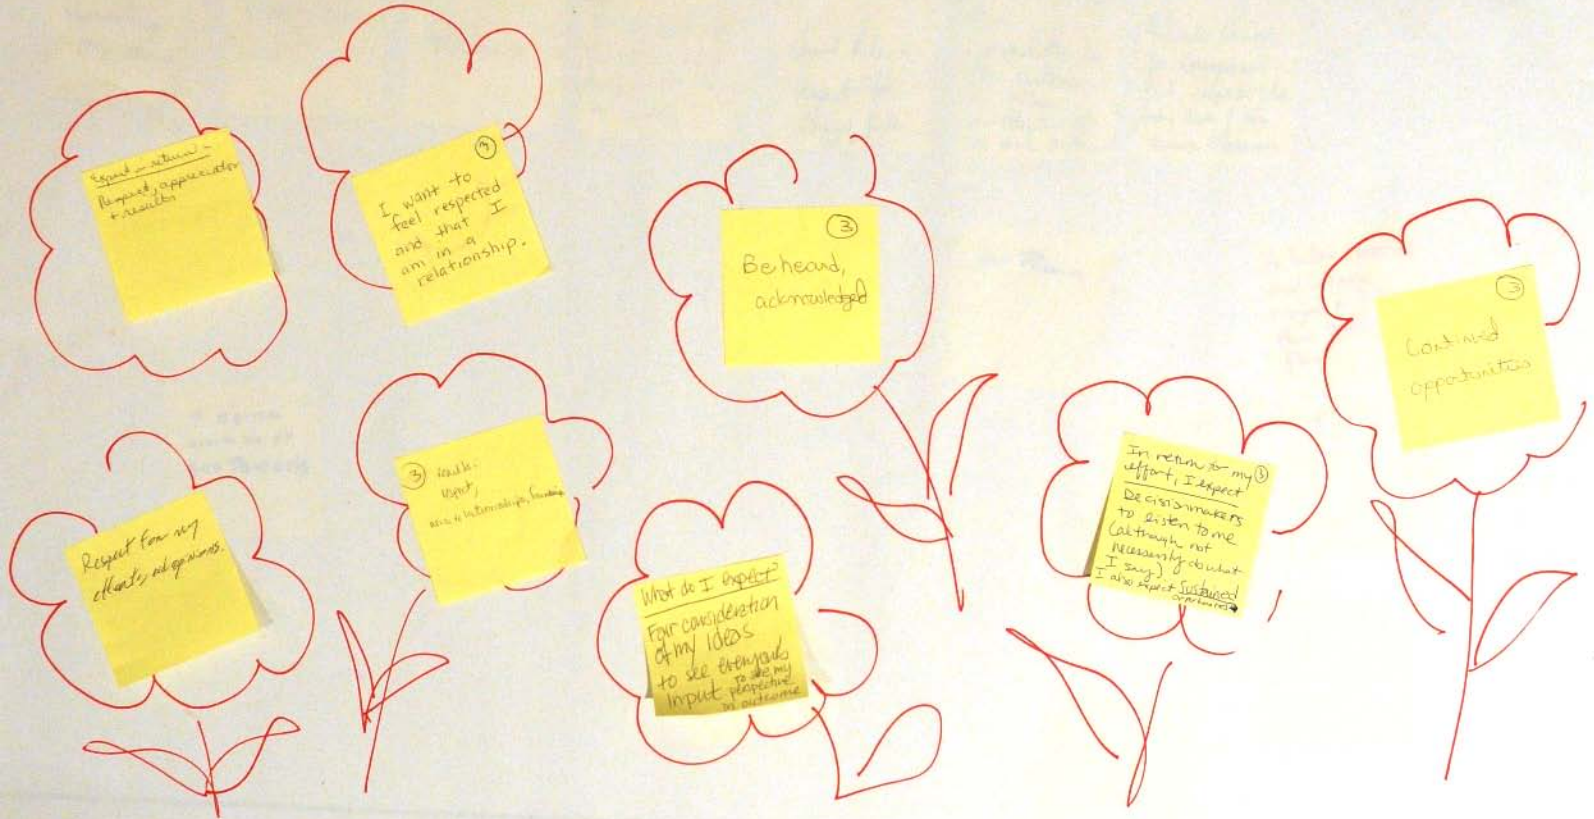 Expect in return -
Respect, appreciation
+ results
3
I want to
feel respected
and that I
am in a
relationship.
3
Be heard,
acknowledged
3
Continued
opportunities
Respect for my
efforts, and opinions.
3
respect,
relationships,
What do I expect?
Fair consideration
of my ideas
to see everyone's
input to see my
perspective
in outcome
3
In return for my
effort, I expect
Decisionmakers
to listen to me
(although not
necessarily do what
I say)
I also expect sustained